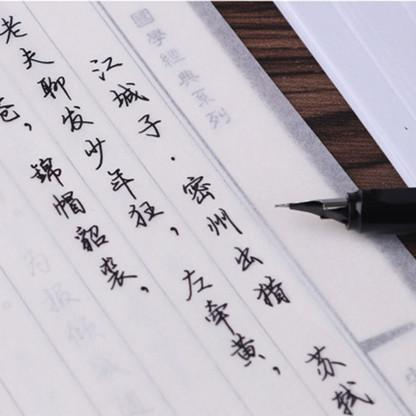 國學經典系列
江城子·密州出猎 苏轼
老夫聊发少年狂，左牵黄，
苍，锦帽貂裘，
为报倾城随